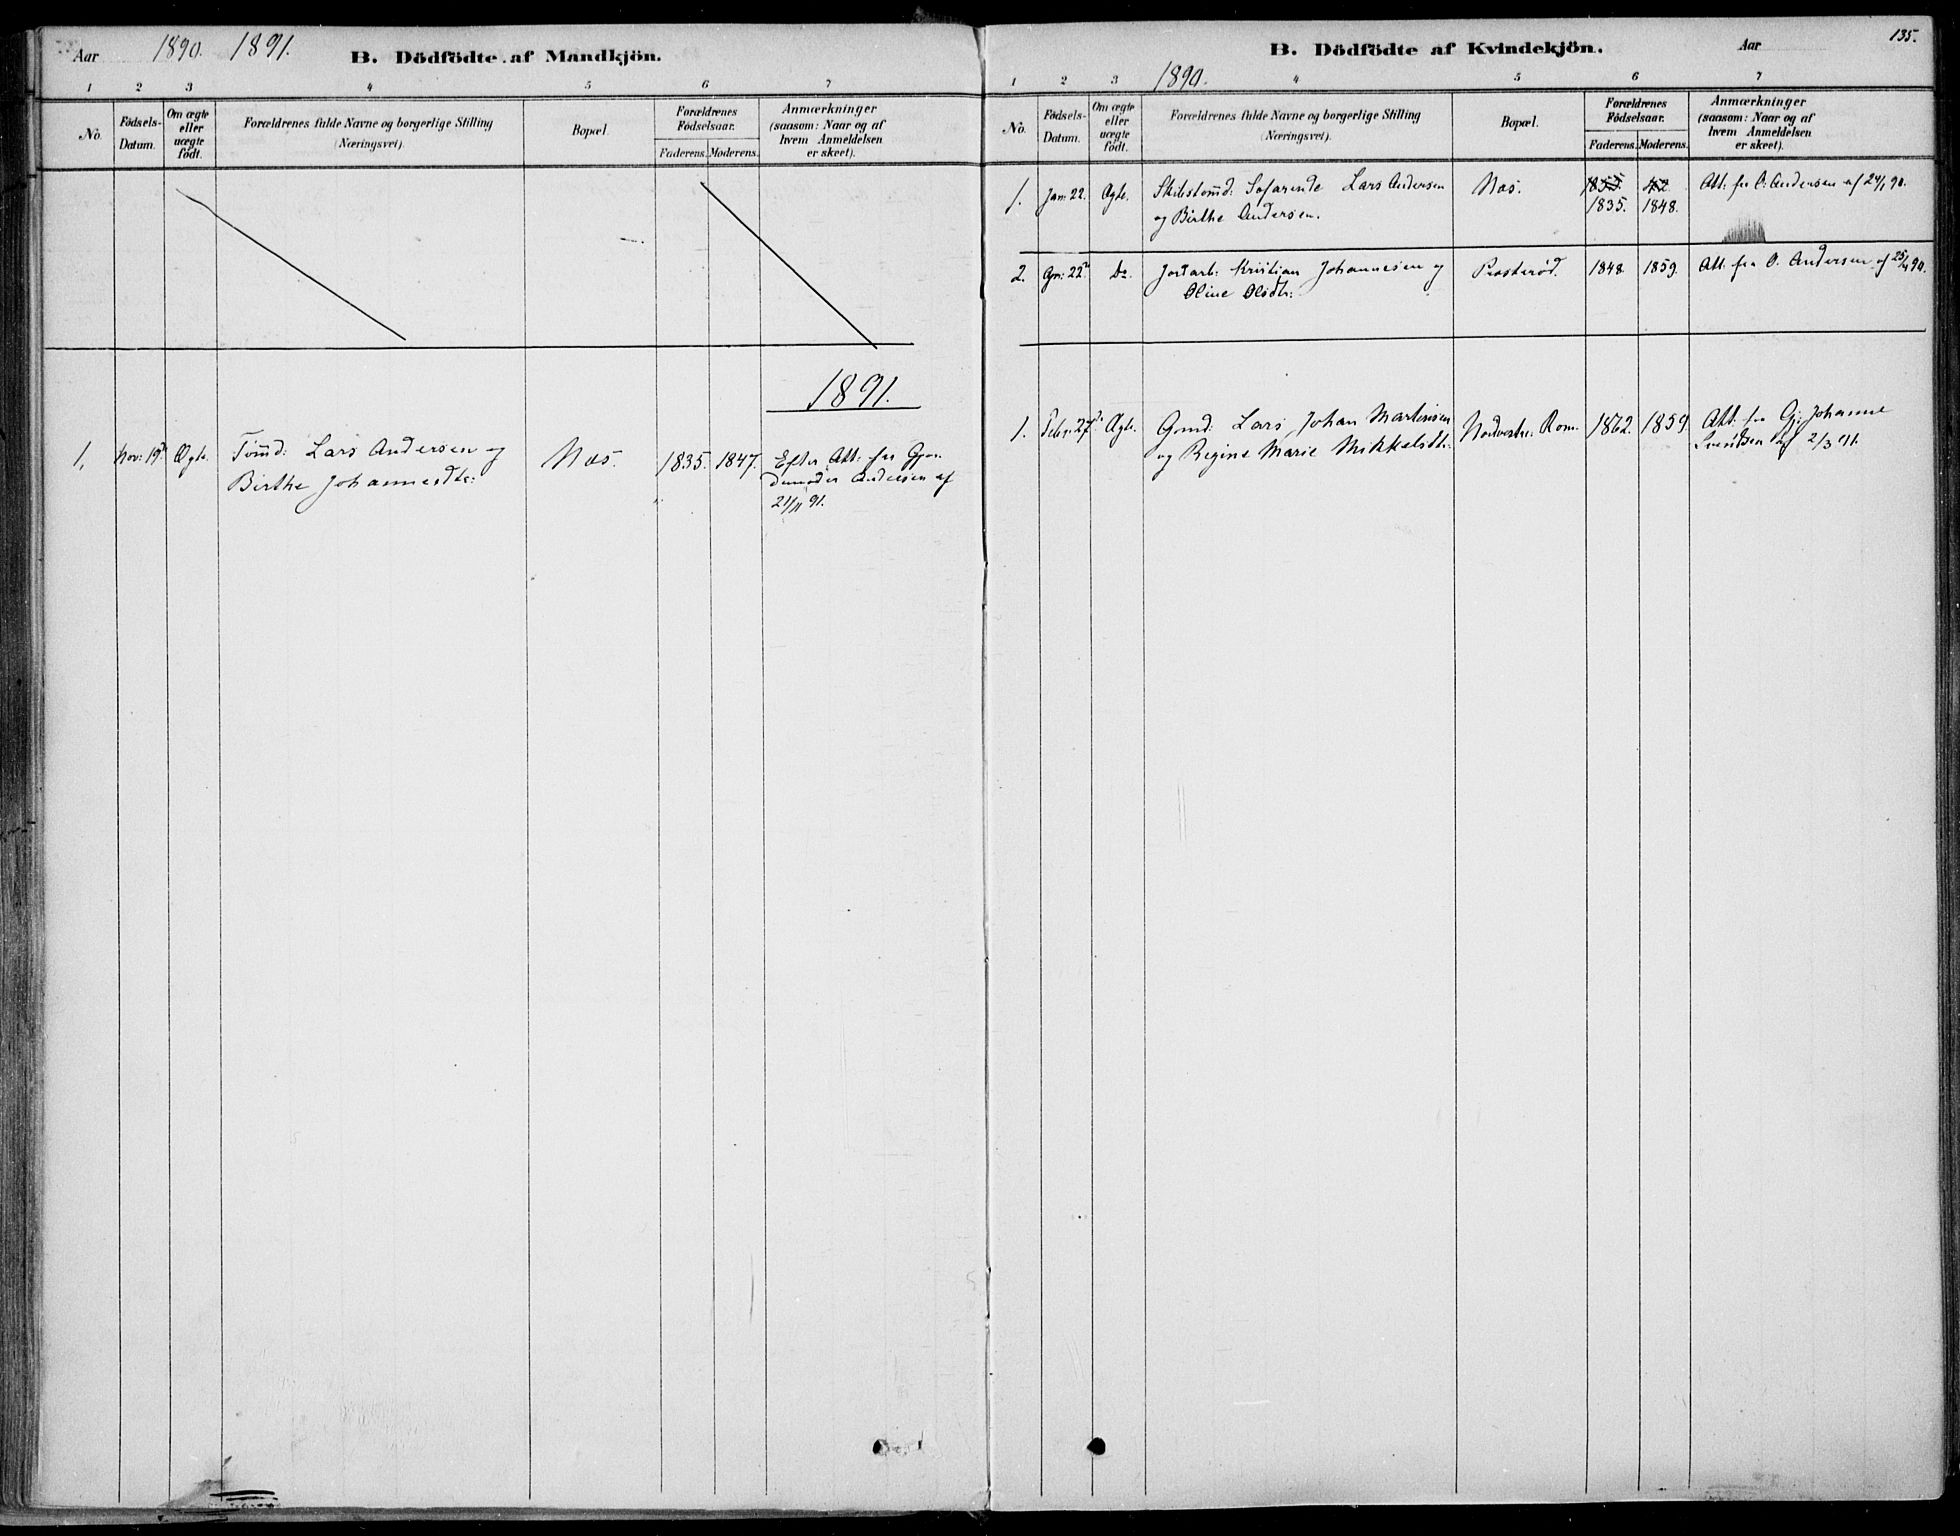 Aar 1890. 1891. B. Dödfödte af Mandkjön.
1 2 3 4 5 6 7
No. Födsels-Datum. Om ægte eller uægte födt. Forældrenes fulde Navne og borgerlige Stilling (Næringsvei). Bopæl. Forældrenes Födselsaar. Faderens. Moderens. Anmærkninger (saasom: Naar og af hvem Anmeldelsen er skeet).
1891.
1, Nov: 19d Ægte. Tømd: Lars Andersen og Næs. 1835. 1847. Efter Att: fra Gjor-
Birthe Johannesdtr: demoder Andersen af
21/11 91.
B. Dödfödte af Kvindekjön. Aar 135.
1890.
1 2 3 4 5 6 7
No. Födsels-Datum. Om ægte eller uægte födt. Forældrenes fulde Navne og borgerlige Stilling (Næringsvei). Bopæl. Forældrenes Födselsaar. Faderens. Moderens. Anmærkninger (saasom: Naar og af hvem Anmeldelsen er skeet).
1. Jan: 22. Ægte. Skibstømd: Søfarende Lars Andersen Næs. Att: fra O: Andersen af 24/1 90.
og Birthe Andersen. 1835. 1848.
2. Apr: 22d Do. Jordarb: Kristian Johannesen og Prosterød. 1848. 1859. Att: fra O. Andersen af 25/4 90.
Oline Olsdtr:
1. Febr: 27d Ægte. Gmd: Lars Johan Martinsen Nedvestre Rom. 1862. 1859. Att: fra Gj: Johanne
og Regine Marie Mikkelsdtr: Svendsen af 2/3 91.